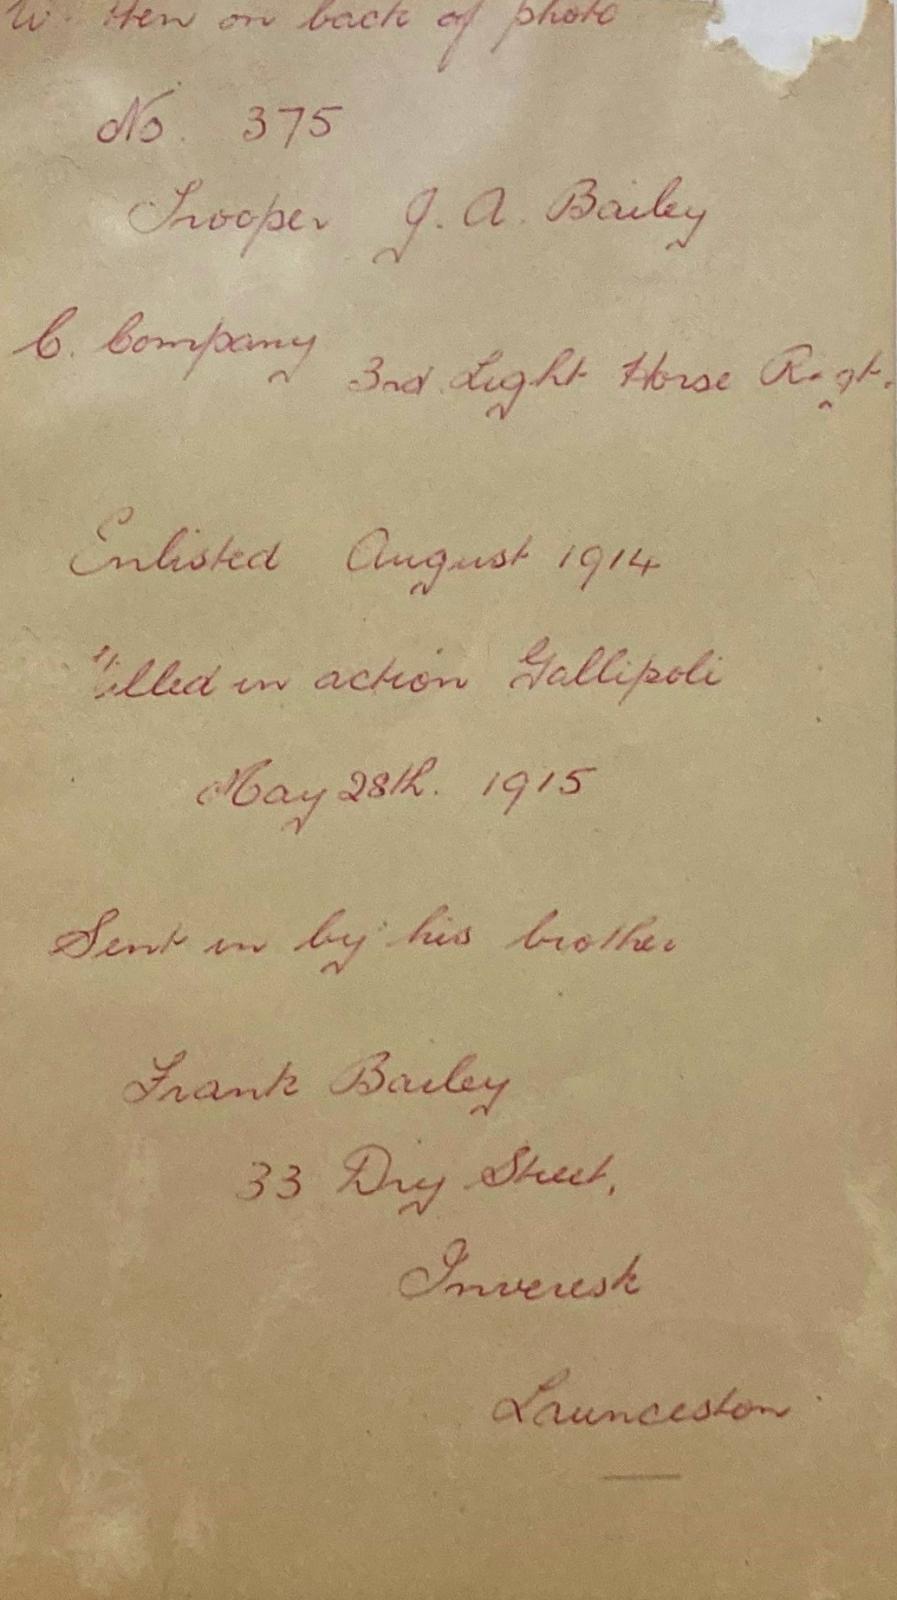 Written on back of photo
No. 375
Trooper J. A. Bailey
C. Company
3rd Light Horse Regt.
Enlisted August 1914
Killed in action Gallipoli
May 28th. 1915
Sent in by his brother
Frank Bailey
33 Dry Street,
Inveresk
Launceston